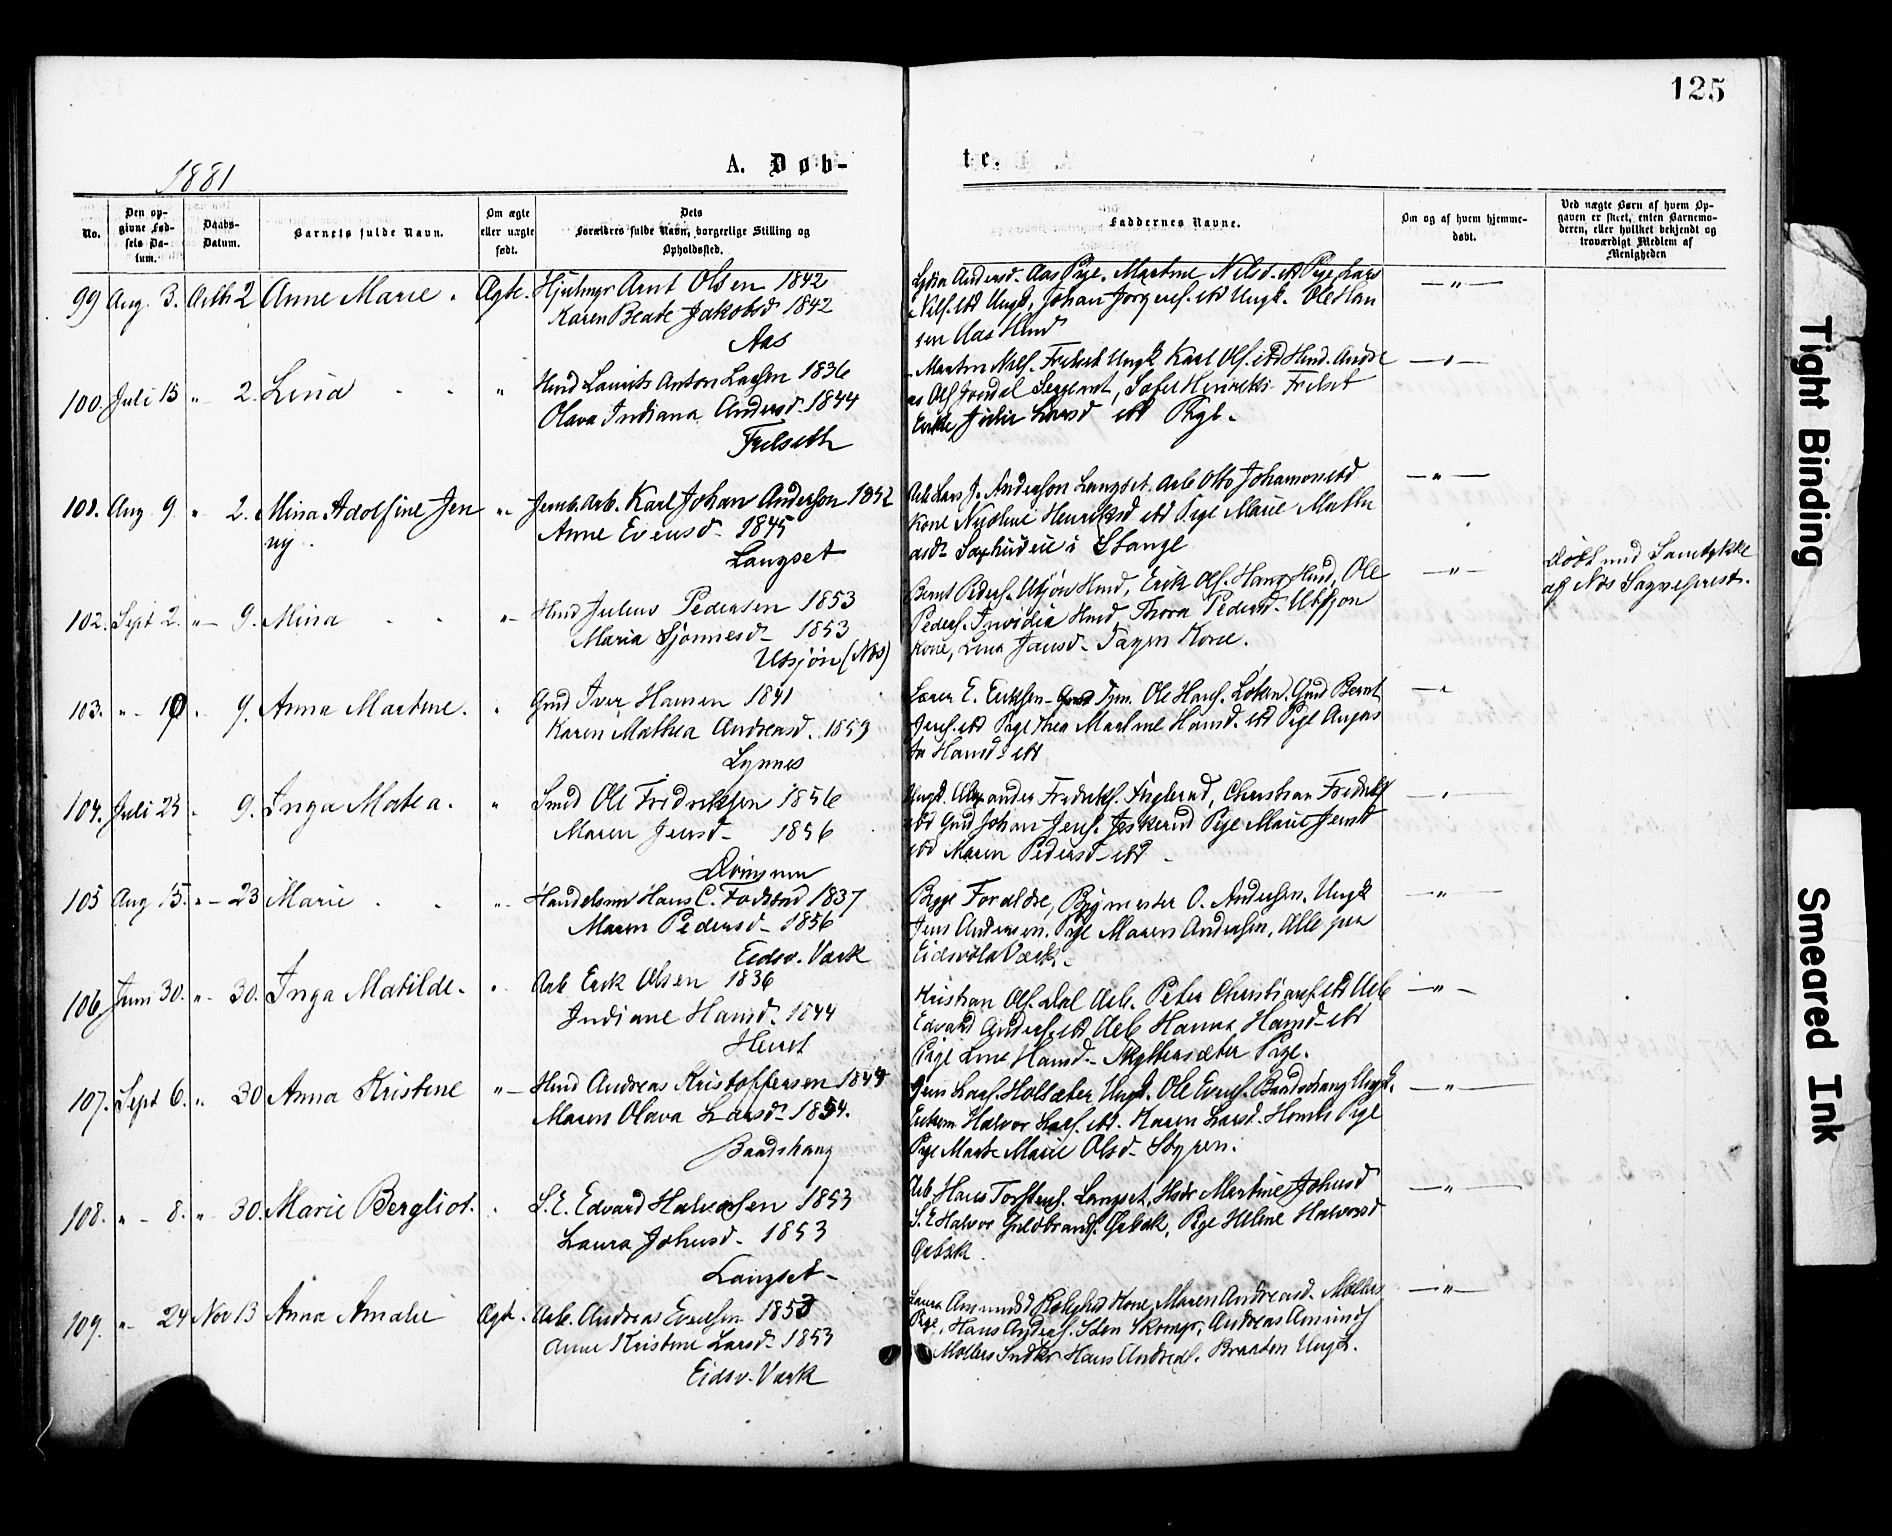 125
1881
A. Døb-
te.
No.
Den op-
givne Fød-
sels Da-
tum.
Daabs-
Datum.
Barnets fulde Navn.
Om ægte
eller uægte
født.
Dets
Forældres fulde Navn, borgerlige Stilling og
Opholdssted.
Faddernes Navne.
Om og af hvem hjemme-
døbt.
Ved uægte Børn af hvem Op-
gaven er skeet, enten Barnemo-
deren, eller hvilket bekjendt og
troværdigt Medlem af
Menigheden
99 Aug. 3. Octb 2 Anne Marie. Ægte. Hjulmgr Arnt Olsen 1842
Karen Beate Jakobsd. 1842
Aas
Andersd. Aas Pige. Martine Nilsd. ibd Pige Lars
Nilss. ibd Ungk., Johan Jørgens. ibd Ungk. Ole Han
sen Aas Hmd
100. Juli 15 " 2. Lina " Hmd Laurits Anton Larsen 1836
Olava Indiana Andersd. 1844
Frilseth
Martin Nilss. Frilset Ungk. Karl Ols. ibd Hmd. Andre
as Ols. Sergeant, Sofie Henriks. Frilset
Enke, Julie Larsd ibd Pige.
101. Aug 9 " 2. Mina Adolfine Jen " Jernb.arb. Karl Johan Anderson 1852
ny.
Anne Evensd. 1845
Langset
Arb Lars J. Anderson Langset. Arb Otto Johanson ibd
Kone Nicoline Henriksd ibd Pige Marie Mathi
asdr i Stange
102. Sept 2. " 9. Mina " Hmd Julius Pedersen 1853
Maria 1853
Utsjøn (Næs)
Bernt Peders. Utsjøn Hmd, Erik Ols. Hmd, Ole
Peders. Hmd, Thora Pedersd. Utsjøn
Kone, Lina Jansd. Kone.
Døbt med Samtykke
af Næs Sogneprest.
103. " 10 " 9. Anna Martine. " Gmd Iver Hansen 1841
Karen Mathea Andreasd. 1859
Lynnes
Lærer E. Eriksen Ole Hans. Løken. Gmd Bernt
Jens. ibd Pige Thea Martine Hansd. ibd Pige Augus
ta Hansd. ibd
104. Juli 25 " 9. Inga Matea. " Smed Ole Fredriksen 1856
Maren Jensd. 1856
Ungk. Alexander Fredriks. Christian Fredriks
ibd Gmd Johan Jens. Pige Marie Jensd
ibd Maren Pedersd. ibd
105 Aug 15. " 23 Marie " Handelsm Hans C. 1837
Maren Pedersd. 1856
Eidsv. Værk
Begge Forældre, Bygmester O. Andersen. Ungk
Jens Andersen. Pige Maren Andersen, Alle paa
Eidsvolds Værk.
106. Juni 30. " 30. Inga Matilde. " Arb Erik Olsen 1836
Indiane Hansd. 1844
Kristian Ols. Dal Arb. Peter Christians. ibd Arb
Edvard Anders. ibd Arb Hanna Hansd. ibd
Pige Lina Hansd. Pige.
107. Sept 6. " 30 Anna Kristine " Hmd Andreas Kristoffersen 1849
Maren Olava Larsd. 1854.
Baadshaug
Jens Lars. Holsæter Ungk. Ole Evens. Baadshaug Ungk.
Halvor Lars. ibd. Karen Larsd. Pige
Pige Marte Marie Olsd. Styren.
108. " 8. " 30. Marie Bergliot. " S.E. Edvard Halvorsen 1853
Laura Johnsd. 1853
Langset
Arb. Hans Torstens. Langset, Martine Johnsd
S.E Halvor Gulbrands. Ørbæk, Pige Helene Halvorsd
Ørbæk.
109. " 24 Nov 13 Anna Amalie Ægte. Arb. Andreas Evensen 1853
Anne Kristine Larsd. 1853
Eidsv. Værk
Laura Amundsd Kone, Maren Andreasd. Møllers
Pige, Hans Anders. Steen Skomgr, Andreas Amunds
Møllers Hans Andreas. Braaten Ungk.
Tight Binding
Smeared Ink